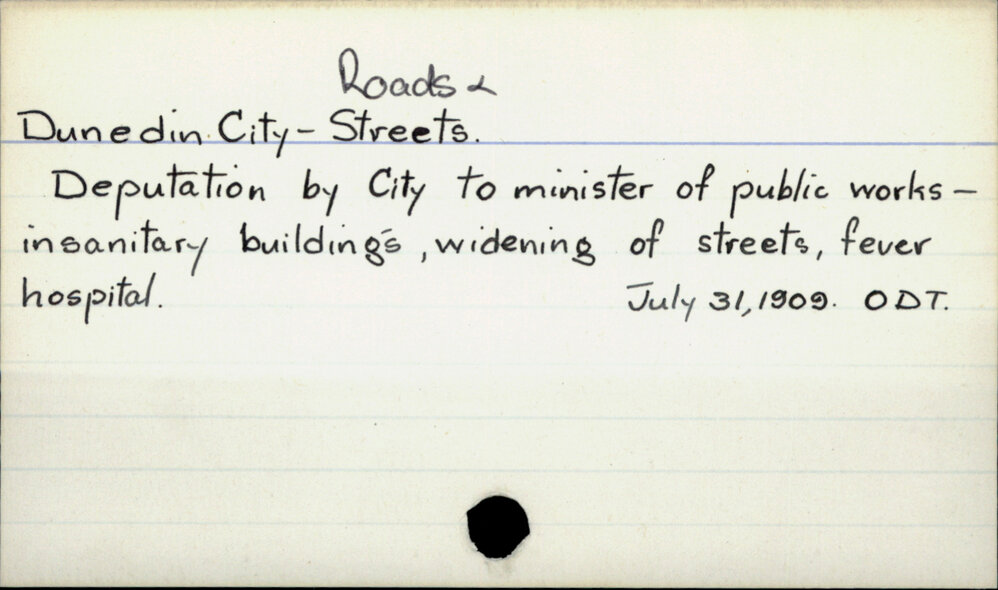 Roads &
Dunedin City - Streets.
Deputation by City to minister of public works -
insanitary buildings, widening of streets, fever
hospital. July 31, 1909. ODT.